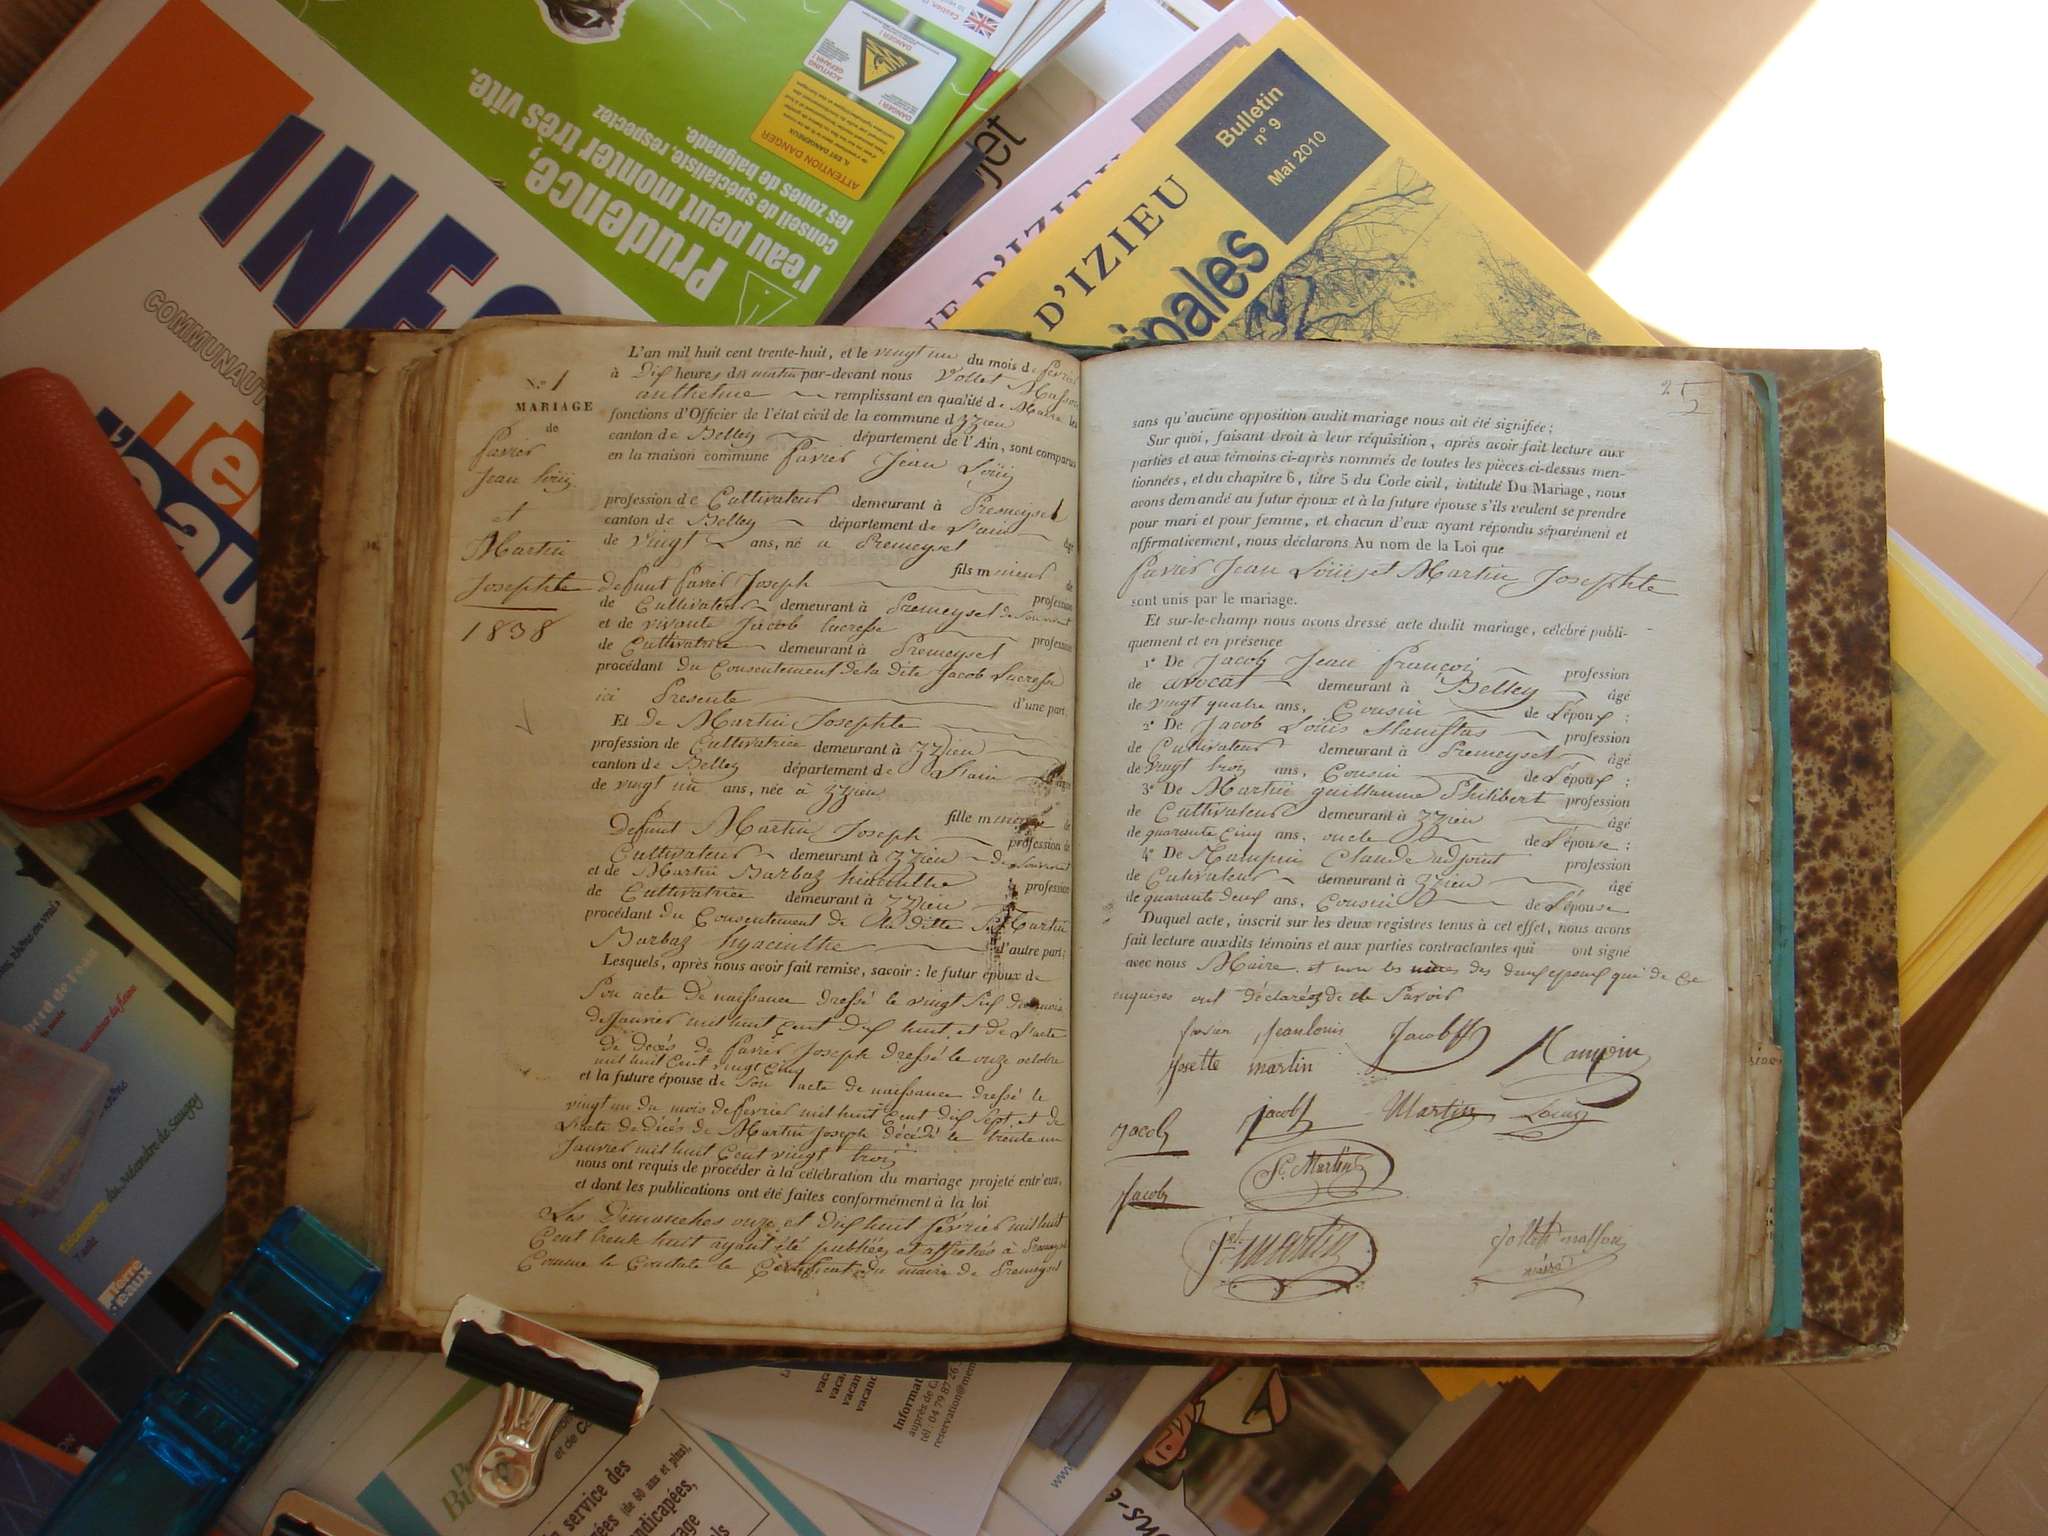 INFO
COMMUNAUT
Prudence,
l'eau peut monter très vite.
conseil de spécialiste, respectez
les zones de baignade.
ATTENTION DANGER
IL EST DANGEREUX
Bulletin
n° 9
Mai 2010
D'IZIEU
NE D'IZIEU
cipales
jet
N.° 1
MARIAGE
de
favier
Jean Loüis
et
Martin
Josephte
1838
L'an mil huit cent trente-huit, et le vingt un du mois de fevrier
à Dix heures du matin par-devant nous Vollet Masson
anthelme remplissant en qualité de Maire les
fonctions d'Officier de l'état civil de la commune d'izzieu
canton de Belley département de l'Ain, sont comparus
en la maison commune favier Jean Loüis
profession de Cultivateur demeurant à Premeysel
canton de Belley département de l'ain âgé
de vingt ans, né a Premeysel
fils mineur de
defunt favier Joseph profession
de Cultivateur demeurant à Premeysel de Son vivant
et de vivante Jacob lucresse profession
de Cultivatrice demeurant à Premeysel
procédant du Consentement de la dite Jacob Lucresse
ici Presente d'une part.
Et de Martin Josephte
profession de Cultivatrice demeurant à izzieu
canton de Belley département de l'ain âgée
de vingt un ans, née à izzieu
fille mineure de
defunt Martin Joseph profession de
Cultivateur demeurant à izzieu de Son vivant
et de Martin Barbaz hiacinthe profession
de Cultivatrice demeurant à izzieu
procédant du Consentement de la ditte Martin
Barbaz hyacinthe d'autre part;
Lesquels, après nous avoir fait remise, savoir : le futur époux de
Son acte de naissance dressé le vingt Six du mois
de Janvier mil huit Cent dix huit et de l'acte
de decès de favier Joseph dressé le onze octobre
mil huit Cent vingt Cinq
et la future épouse de Son acte de naissance dressé le
vingt un du mois de fevrier mil huit Cent dix Sept, et de
l'acte de décès de Martin Joseph décédé le trente un
Janvier mil huit Cent vingt trois
nous ont requis de procéder à la célébration du mariage projeté entr'eux,
et dont les publications ont été faites conformément à la loi
Les Dimanches onze et dix huit février mil huit
Cent trente huit ayant été publiées et affichés à Premeysel
Comme le Constate le Certificat du maire de Premeysel
25
sans qu'aucune opposition audit mariage nous ait été signifiée;
Sur quoi, faisant droit à leur réquisition, après avoir fait lecture aux
parties et aux témoins ci-après nommés de toutes les pièces ci-dessus men-
tionnées, et du chapitre 6, titre 5 du Code civil, intitulé Du Mariage, nous
avons demandé au futur époux et à la future épouse s'ils veulent se prendre
pour mari et pour femme, et chacun d'eux ayant répondu séparément et
affirmaticement, nous déclarons Au nom de la Loi que
favier Jean Loüis et Martin Josephte
sont unis par le mariage.
Et sur-le-champ nous avons dressé acte dudit mariage, célébré publi-
quement et en présence
1° De Jacob Jean françois profession
de avocat demeurant à Belley âgé
de vingt quatre ans, Cousin de l'époux ;
2° De Jacob Loüis Stanislas profession
de Cultivateur demeurant à Premeysel âgé
de vingt trois ans, Cousin de l'époux ;
3° De Martin guillaume Philibert profession
de Cultivateur demeurant à izzieu âgé
de quarante Cinq ans, oncle de l'épouse ;
4° De Rampin Claude adjoint profession
de Cultivateur demeurant à izzieu âgé
de quarante deux ans, Cousin de l'épouse
Duquel acte, inscrit sur les deux registres tenus à cet effet, nous avons
fait lecture auxdits témoins et aux parties contractantes qui ont signé
avec nous Maire et non les mères des deux epoux qui de ce
enquises ont déclarées de ne Savoir
favier jean louis Jacob Rampin
josette martin
Jacob jacob Martin
Jacob Martin
martin
Vollet masson
maire
Informat
auprès de
reservation@mem
service des
(de 60 ans et plus),
ndicapées,